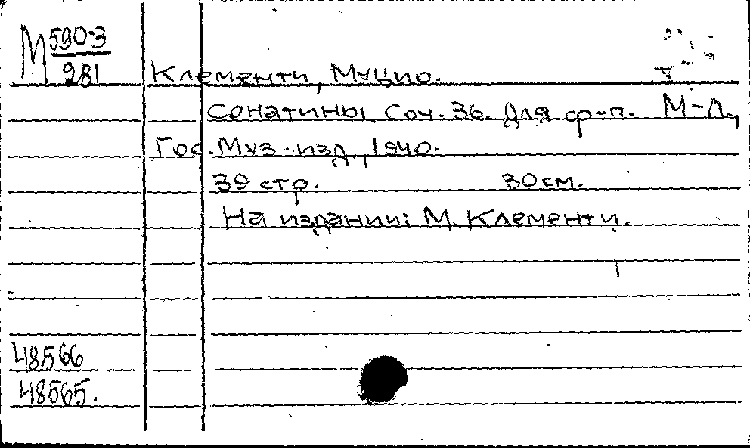 М 590-3
281
Клементи, Муцио.
Сонатины. Соч. 36. Для ф-п. М-Л.,
Гос. Муз. изд., 1940.
39 стр. 30 см.
На издании: М. Клементи.
48566
48565.